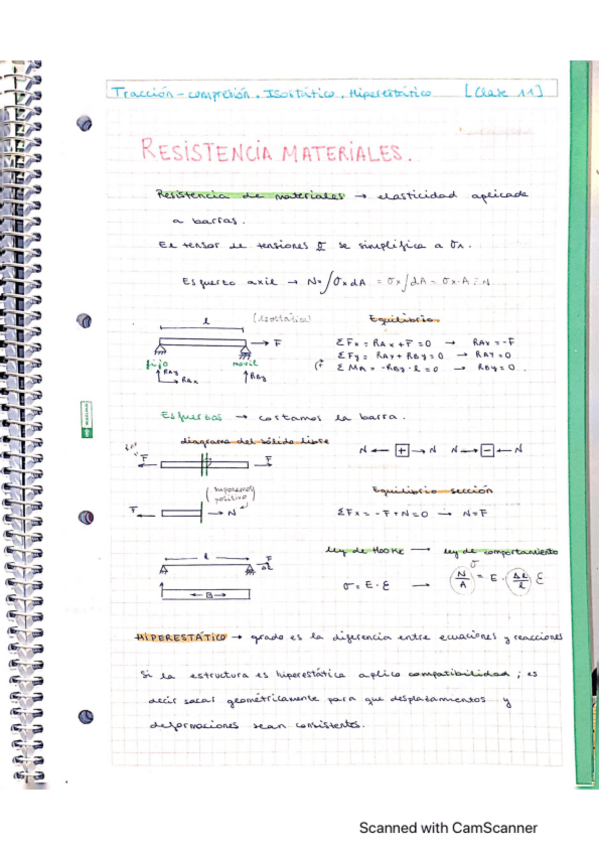 Tracción - compresión. Isostático. Hiperestático [Clase 11]
RESISTENCIA MATERIALES.
Resistencia de materiales → elasticidad aplicada
a barras.
El tensor de tensiones σ se simplifica a σx.
Esfuerzo axil → N=∫σx dA = σx∫dA = σx·A = N
l
(Isostática)
→ F
fijo
movil
RAy
RAx
RBy
Equilibrio
ΣFx = RAx + F = 0 → RAx = -F
ΣFy = RAy + RBy = 0 → RAy = 0
ΣMA = -RBy · l = 0 → RBy = 0.
Esfuerzos → cortamos la barra.
diagrama del sólido libre
F
F
N ← + → N N → - ← N
(Imponemos
positivo)
F
→ N
Equilibrio sección
ΣFx = -F + N = 0 → N = F
l
F
Δl
ley de HOOKE → ley de comportamiento
σ = E · ε → N/A = E · Δl/l
σ
ε
HIPERESTÁTICO → grado es la diferencia entre ecuaciones y reacciones
Si la estructura es hiperestática aplico compatibilidad; es
decir sacar geométricamente para que desplazamientos y
deformaciones sean consistentes.
Scanned with CamScanner